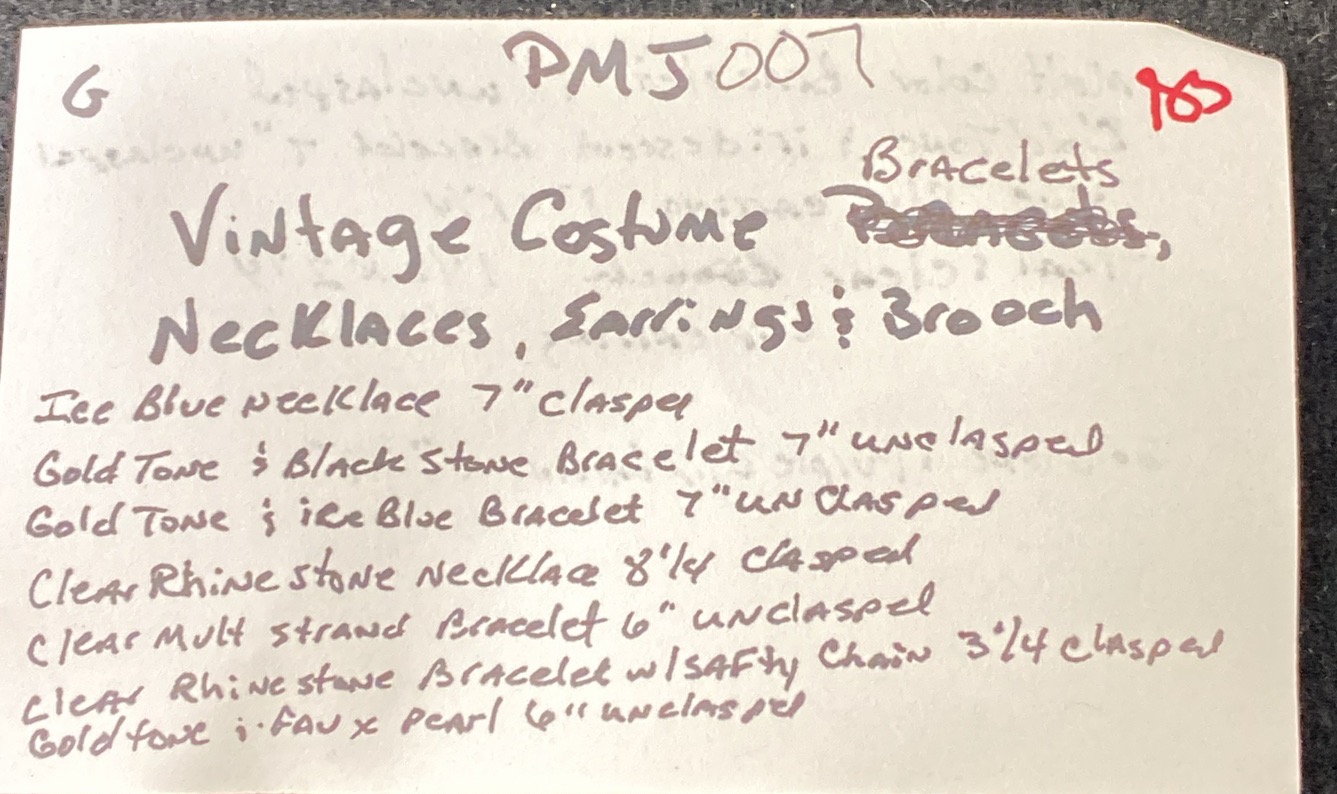 G
DMJ007
Bracelets
Vintage Costume ,
Necklaces, Earrings & Brooch
Ice Blue Necklace 7" clasped
Gold Tone & Black Stone Bracelet 7" unclasped
Gold Tone & ice Blue Bracelet 7" unclasped
Clear Rhinestone Necklace 8 1/4 clasped
Clear Mult strand Bracelet 6" unclasped
Clear Rhinestone Bracelet w/SAFty Chain 3 1/4 clasped
Goldtone & FAUx Pearl 6" unclasped